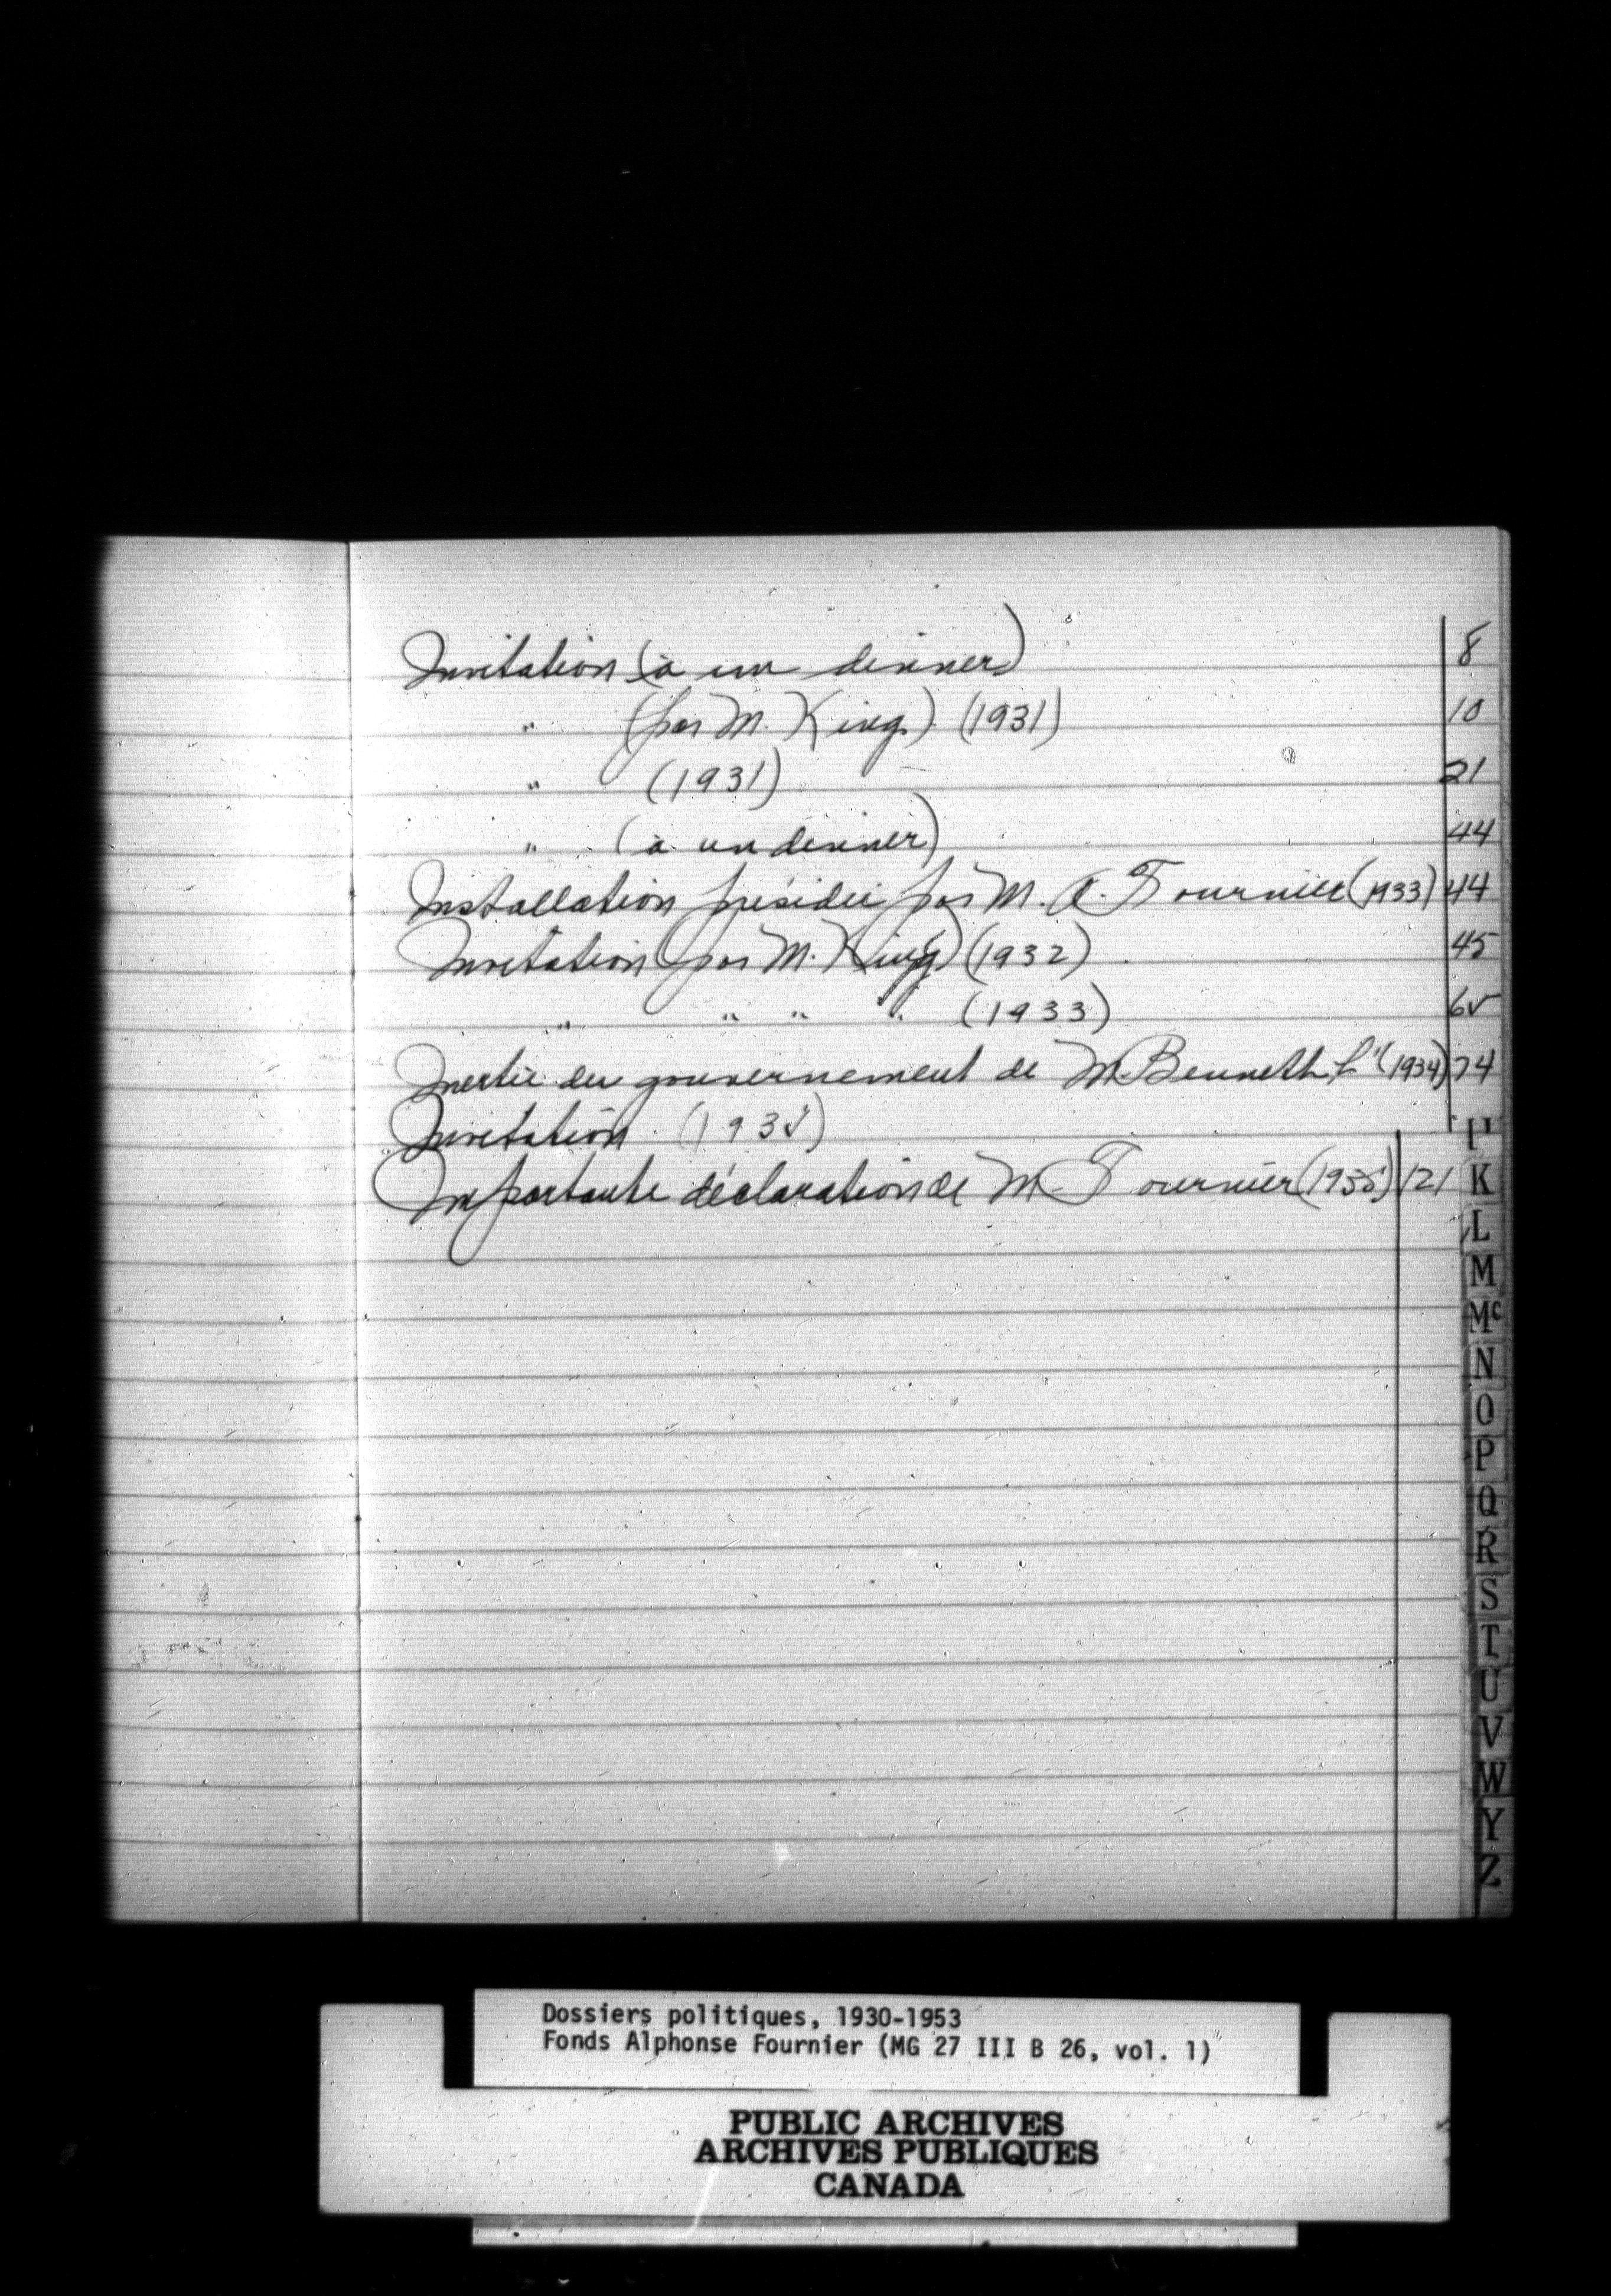 Invitation (à un dinner) 8
" (par M. King) (1931) 10
" (1931) 21
" (à un dinner) 44
Installation présidée par M. A. Fournier (1933) 44
Invitation (par M. King) (1932) 45
" " " " (1933) 65
Inertie du gouvernement de M. Bennett (1934) 74
Invitation (1935)
Importante déclaration de M. Fournier (1935) 121
K
L
M
Mc
N
O
P
Q
R
S
T
U
V
W
Y
Z
Dossiers politiques, 1930-1953
Fonds Alphonse Fournier (MG 27 III B 26, vol. 1)
PUBLIC ARCHIVES
ARCHIVES PUBLIQUES
CANADA